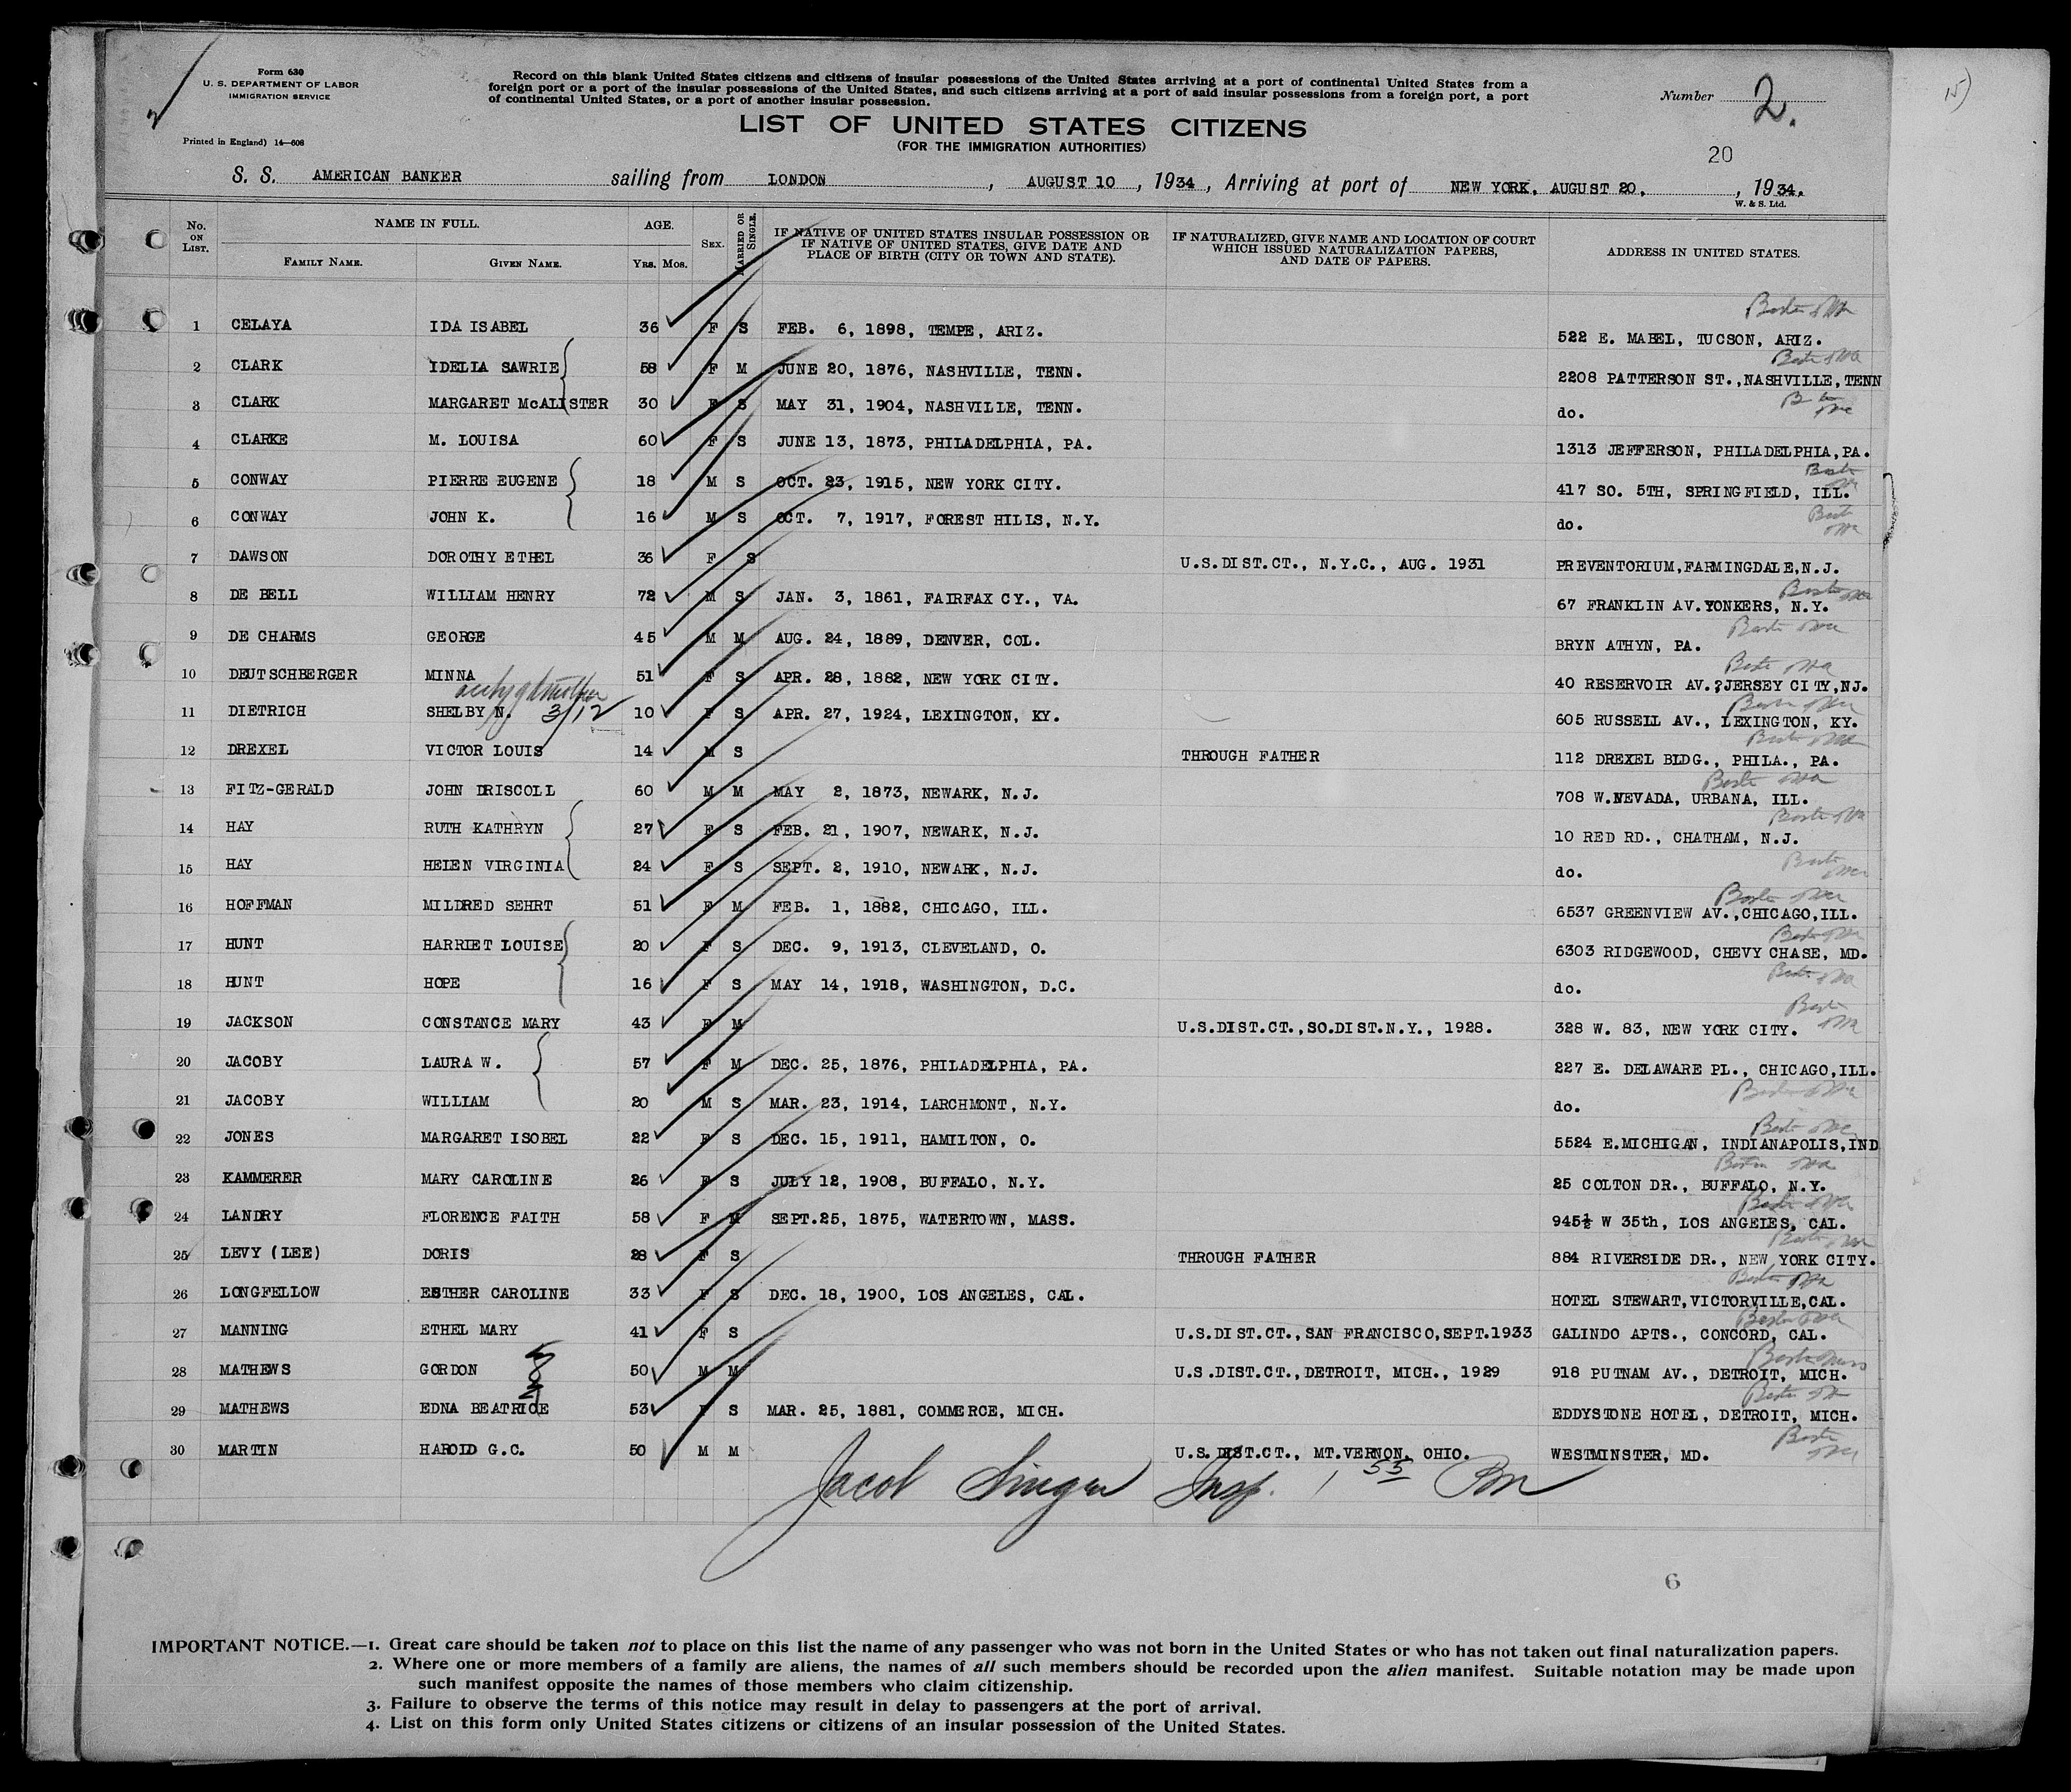 Form 630
U. S. DEPARTMENT OF LABOR
IMMIGRATION SERVICE
Printed in England) 14—608
Record on this blank United States citizens and citizens of insular possessions of the United States arriving at a port of continental United States from a
foreign port or a port of the insular possessions of the United States, and such citizens arriving at a port of said insular possessions from a foreign port, a port
of continental United States, or a port of another insular possession.
Number 2.
15)
LIST OF UNITED STATES CITIZENS
(FOR THE IMMIGRATION AUTHORITIES)
20
S. S. AMERICAN BANKER sailing from LONDON, AUGUST 10, 1934, Arriving at port of NEW YORK, AUGUST 20, , 1934.
W. & S. Ltd.
No. ON LIST. NAME IN FULL. FAMILY NAME. GIVEN NAME. AGE. YRS. MOS. SEX. MARRIED OR SINGLE. IF NATIVE OF UNITED STATES INSULAR POSSESSION OR IF NATIVE OF UNITED STATES, GIVE DATE AND PLACE OF BIRTH (CITY OR TOWN AND STATE). IF NATURALIZED, GIVE NAME AND LOCATION OF COURT WHICH ISSUED NATURALIZATION PAPERS, AND DATE OF PAPERS. ADDRESS IN UNITED STATES.
1 CELAYA IDA ISABEL 36 F S FEB. 6, 1898, TEMPE, ARIZ. 522 E. MABEL, TUCSON, ARIZ.
2 CLARK IDELIA SAWRIE 58 F M JUNE 20, 1876, NASHVILLE, TENN. 2208 PATTERSON ST.,NASHVILLE,TENN
3 CLARK MARGARET McALISTER 30 F S MAY 31, 1904, NASHVILLE, TENN. do.
4 CLARKE M. LOUISA 60 F S JUNE 13, 1873, PHILADELPHIA, PA. 1313 JEFFERSON, PHILADELPHIA,PA.
5 CONWAY PIERRE EUGENE 18 M S OCT. 23, 1915, NEW YORK CITY. 417 SO. 5TH, SPRINGFIELD, ILL.
6 CONWAY JOHN K. 16 M S OCT. 7, 1917, FOREST HILLS, N.Y. do.
7 DAWSON DOROTHY ETHEL 36 F S U.S.DIST.CT., N.Y.C., AUG. 1931 PREVENTORIUM,FARMINGDALE,N.J.
8 DE BELL WILLIAM HENRY 72 M S JAN. 3, 1861, FAIRFAX CY., VA. 67 FRANKLIN AV.YONKERS, N.Y.
9 DE CHARMS GEORGE 45 M M AUG. 24, 1889, DENVER, COL. BRYN ATHYN, PA.
10 DEUTSCHBERGER MINNA 51 F S APR. 28, 1882, NEW YORK CITY. 40 RESERVOIR AV.,JERSEY CITY,NJ.
11 DIETRICH SHELBY N. 3/12 10 F S APR. 27, 1924, LEXINGTON, KY. 605 RUSSELL AV., LEXINGTON, KY.
12 DREXEL VICTOR LOUIS 14 M S THROUGH FATHER 112 DREXEL BLDG., PHILA., PA.
13 FITZ-GERALD JOHN DRISCOLL 60 M M MAY 2, 1873, NEWARK, N.J. 708 W.NEVADA, URBANA, ILL.
14 HAY RUTH KATHRYN 27 F S FEB. 21, 1907, NEWARK, N.J. 10 RED RD., CHATHAM, N.J.
15 HAY HELEN VIRGINIA 24 F S SEPT. 2, 1910, NEWARK, N.J. do.
16 HOFFMAN MILDRED SEHRT 51 F M FEB. 1, 1882, CHICAGO, ILL. 6537 GREENVIEW AV.,CHICAGO,ILL.
17 HUNT HARRIET LOUISE 20 F S DEC. 9, 1913, CLEVELAND, O. 6303 RIDGEWOOD, CHEVY CHASE, MD.
18 HUNT HOPE 16 F S MAY 14, 1918, WASHINGTON, D.C. do.
19 JACKSON CONSTANCE MARY 43 F M U.S.DIST.CT.,SO.DIST.N.Y., 1928. 328 W. 83, NEW YORK CITY.
20 JACOBY LAURA W. 57 F M DEC. 25, 1876, PHILADELPHIA, PA. 227 E. DELAWARE PL., CHICAGO,ILL.
21 JACOBY WILLIAM 20 M S MAR. 23, 1914, LARCHMONT, N.Y. do.
22 JONES MARGARET ISOBEL 22 F S DEC. 15, 1911, HAMILTON, O. 5524 E.MICHIGAN, INDIANAPOLIS,IND
23 KAMMERER MARY CAROLINE 26 F S JULY 12, 1908, BUFFALO, N.Y. 25 COLTON DR., BUFFALO, N.Y.
24 LANDRY FLORENCE FAITH 58 F M SEPT.25, 1875, WATERTOWN, MASS. 945½ W 35th, LOS ANGELES, CAL.
25 LEVY (LEE) DORIS 28 F S THROUGH FATHER 884 RIVERSIDE DR., NEW YORK CITY.
26 LONGFELLOW ESTHER CAROLINE 33 F S DEC. 18, 1900, LOS ANGELES, CAL. HOTEL STEWART,VICTORVILLE,CAL.
27 MANNING ETHEL MARY 41 F S U.S.DIST.CT.,SAN FRANCISCO,SEPT.1933 GALINDO APTS., CONCORD, CAL.
28 MATHEWS GORDON 50 M M U.S.DIST.CT.,DETROIT, MICH., 1929 918 PUTNAM AV., DETROIT, MICH.
29 MATHEWS EDNA BEATRICE 53 F S MAR. 25, 1881, COMMERCE, MICH. EDDYSTONE HOTEL, DETROIT, MICH.
30 MARTIN HAROLD G.C. 50 M M U.S.DIST.CT., MT.VERNON, OHIO. WESTMINSTER, MD.
Jacob Singer Insp. 1 55 Pm
6
IMPORTANT NOTICE.—1. Great care should be taken not to place on this list the name of any passenger who was not born in the United States or who has not taken out final naturalization papers.
2. Where one or more members of a family are aliens, the names of all such members should be recorded upon the alien manifest. Suitable notation may be made upon
such manifest opposite the names of those members who claim citizenship.
3. Failure to observe the terms of this notice may result in delay to passengers at the port of arrival.
4. List on this form only United States citizens or citizens of an insular possession of the United States.